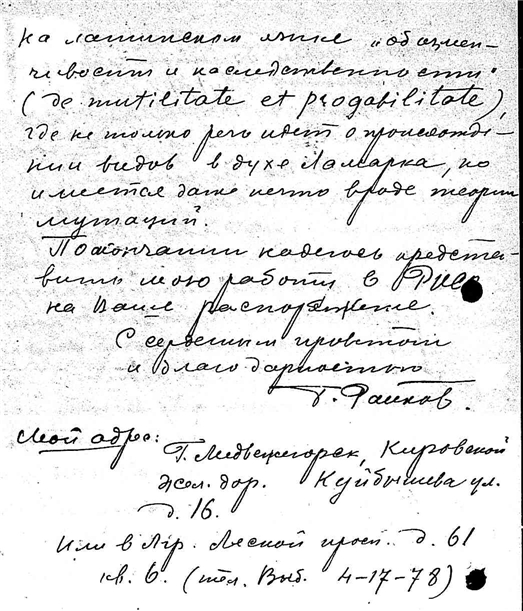 на латинском языке „об измен-
чивости и наследственности"
(de mutilitate et progabilitate),
где не только речь идет о происхожде-
нии видов в духе Ламарка, но
имеется даже нечто вроде теории
мутаций.
По окончании надеюсь предста-
вить мою работу в
на Ваше распоряжение.
С сердечным приветом
и благодарностью
Б. Райков.
Мой адрес:
Г. Медвежегорск, Кировской
жел. дор. Куйбышева ул.
д. 16.
Или в Лгр. Лесной просп. д. 61
кв. 6. (тел. Выб. 4-17-78)